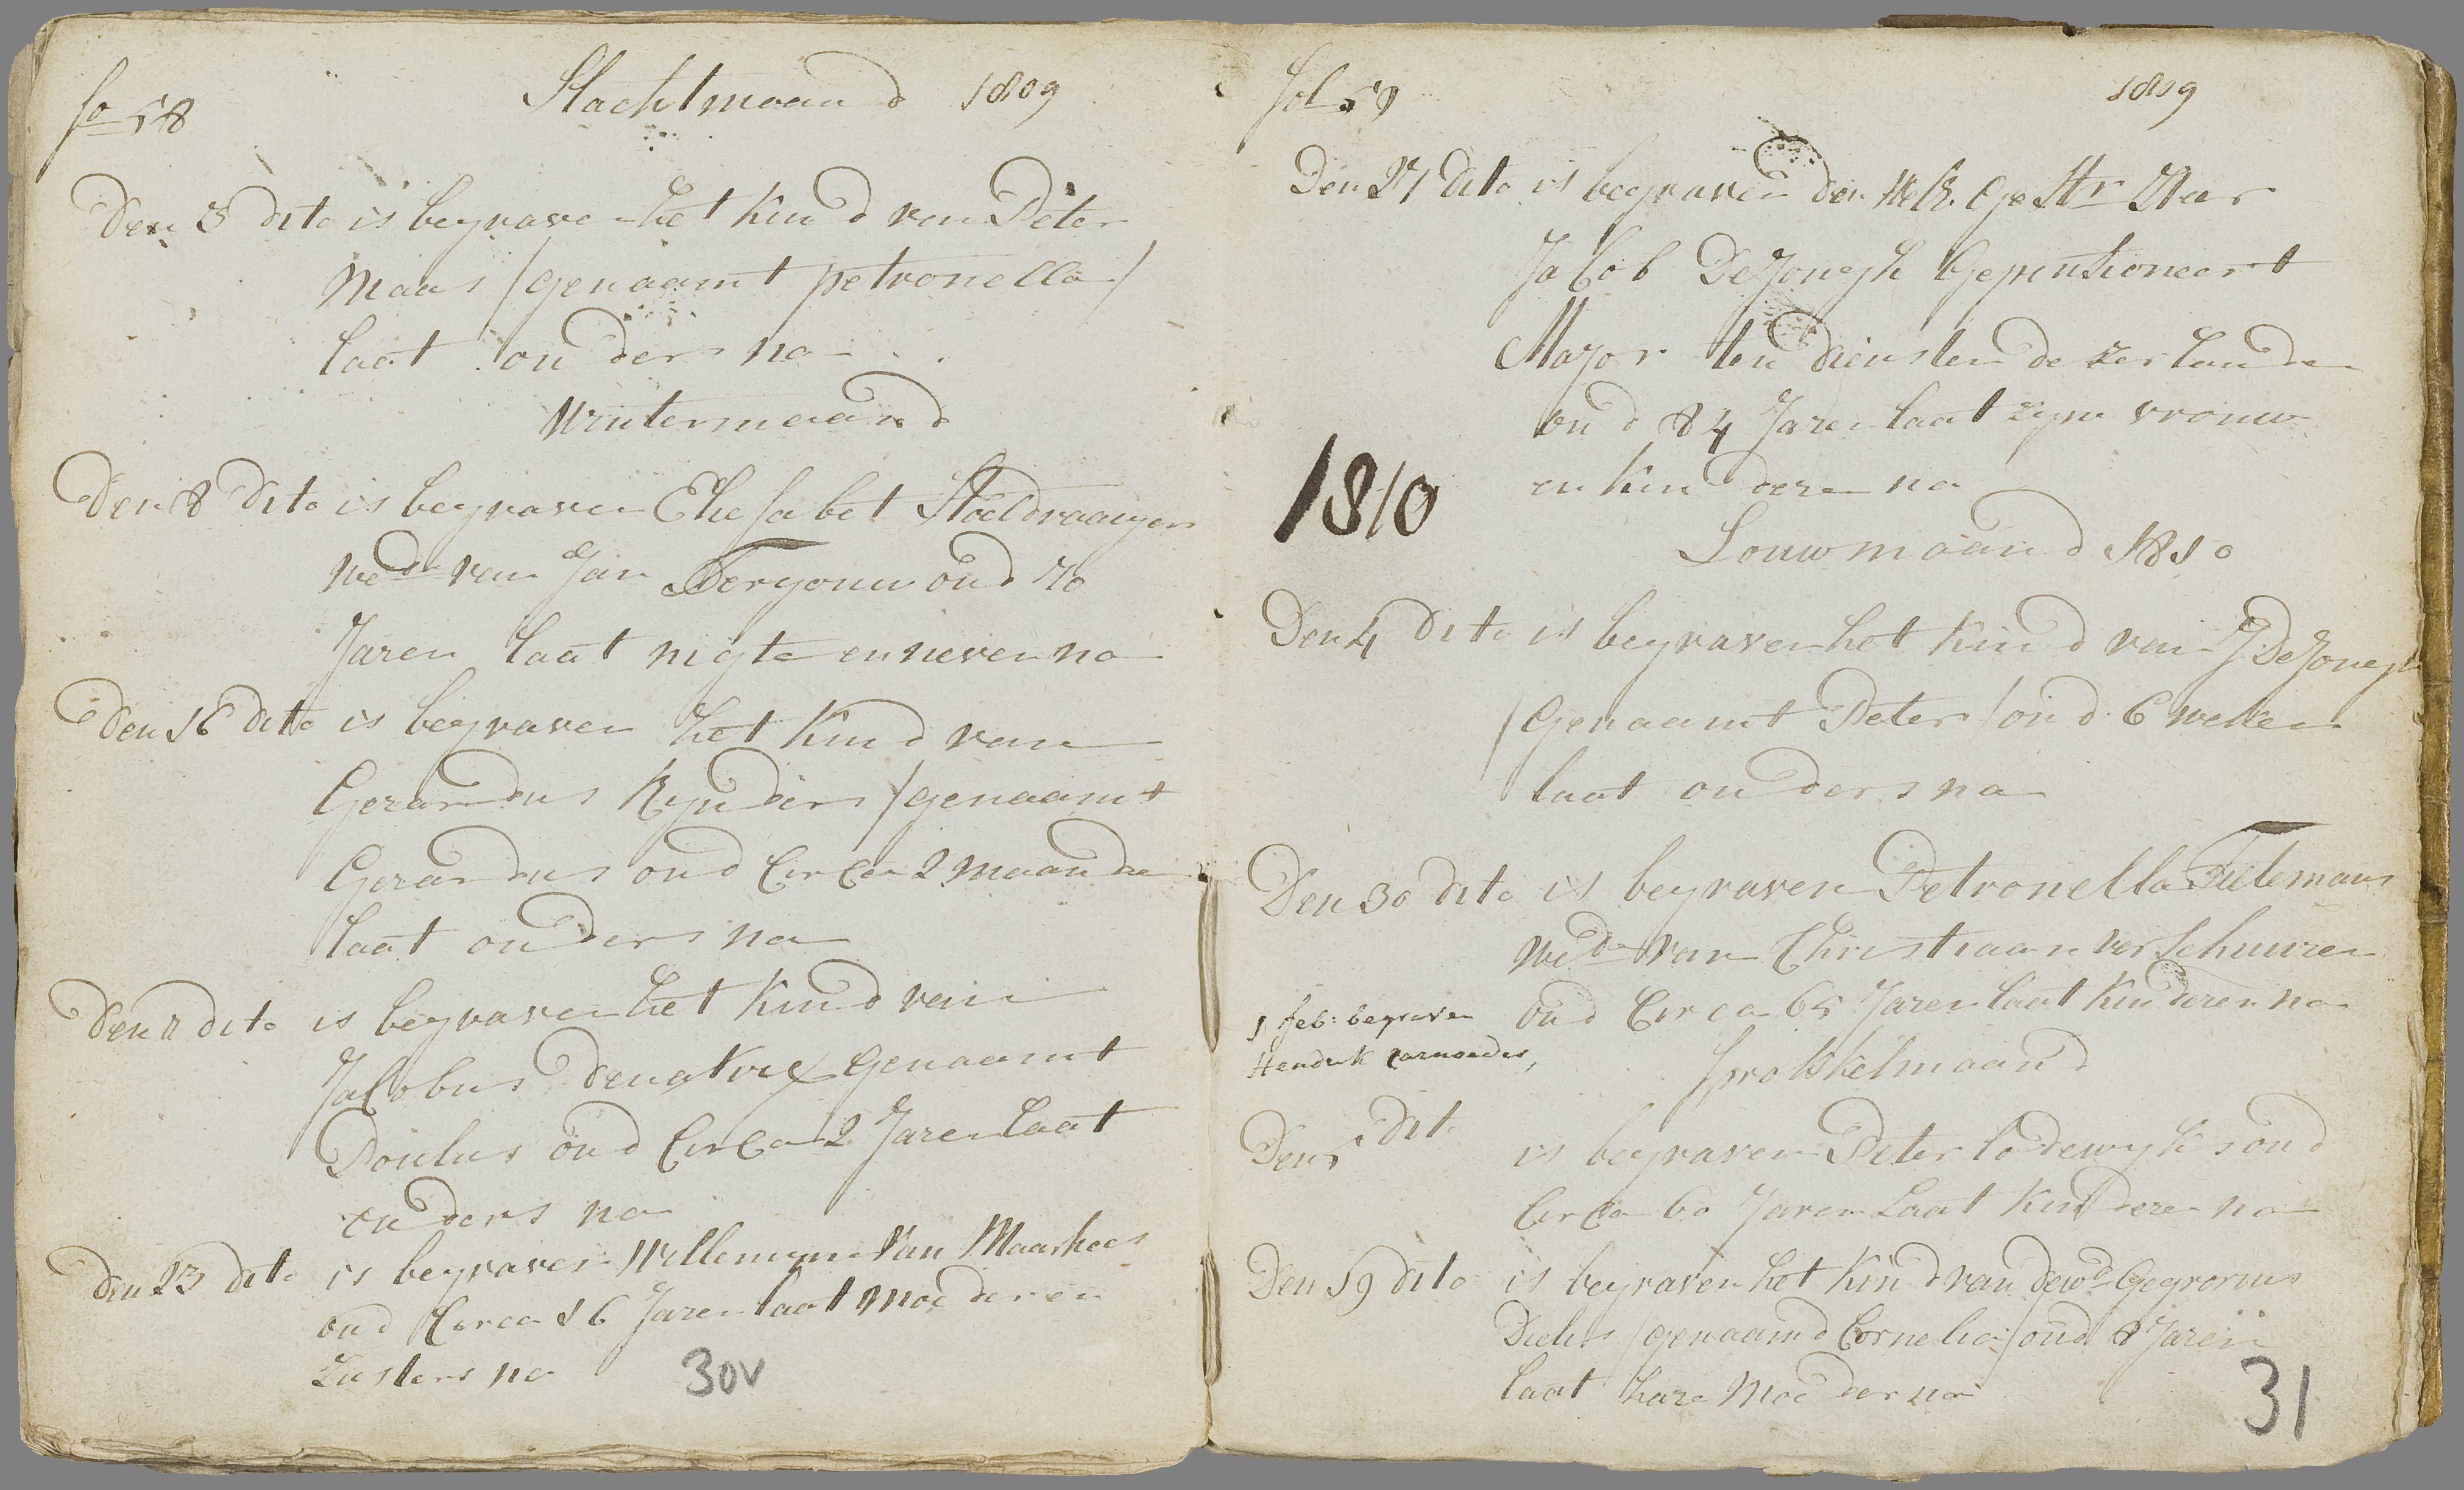 fo 58
Slachtmaand 1809
Den 3 dito is begraven het kind van Peter
Maas /genaamt petronella/
laat ouders na
Wintermaand
Den 8 dito is begraven Elisabet Stoeldraayer
wede van Jan Tergouw oud 70
Jaren laat nigte en neven na
Den 16 dito is begraven het kind van
Gerardus Rynders /genaamt
Gerardus oud Circa 2 maande
laat ouders na
Den dito is begraven het kind van
Jacobus Genaamt
Poulus oud Circa 2 Jaren laat
ouders na
Den 23 dito is begraven Willemyne Van Maarhees
oud Circa 16 Jaren laat moeder en
Zusters na
30v
fol 59
1809
Den 27 dito is begraven den Gestr Heer
Jacob DeJongh Gepentioneert
Major ten diensten dezer lande
oud 84 Jaren laat zyne vrouw
en kinderen na
1810
Louwmaand 1810
Den 4 dito is begraven het kind van J DeJongh
/Genaamt Peter/ oud 6 weken
laat ouders na
Den 30 dito is begraven Petronella Tielemans
wede van Christiaan verschuuren
oud Circa 65 Jaren laat kinderen na
1 feb: begraven
Hendrik
Sprokkelmaand
Den 1 dito is begraven Peter lodewyks oud
Circa 60 Jaren Laat kinderen na
Den 19 dito is begraven het kind van dewe Gegrorius
Dielis /genaamd Cornelia/ oud 8 Jaren
laat hare Moeder na
31